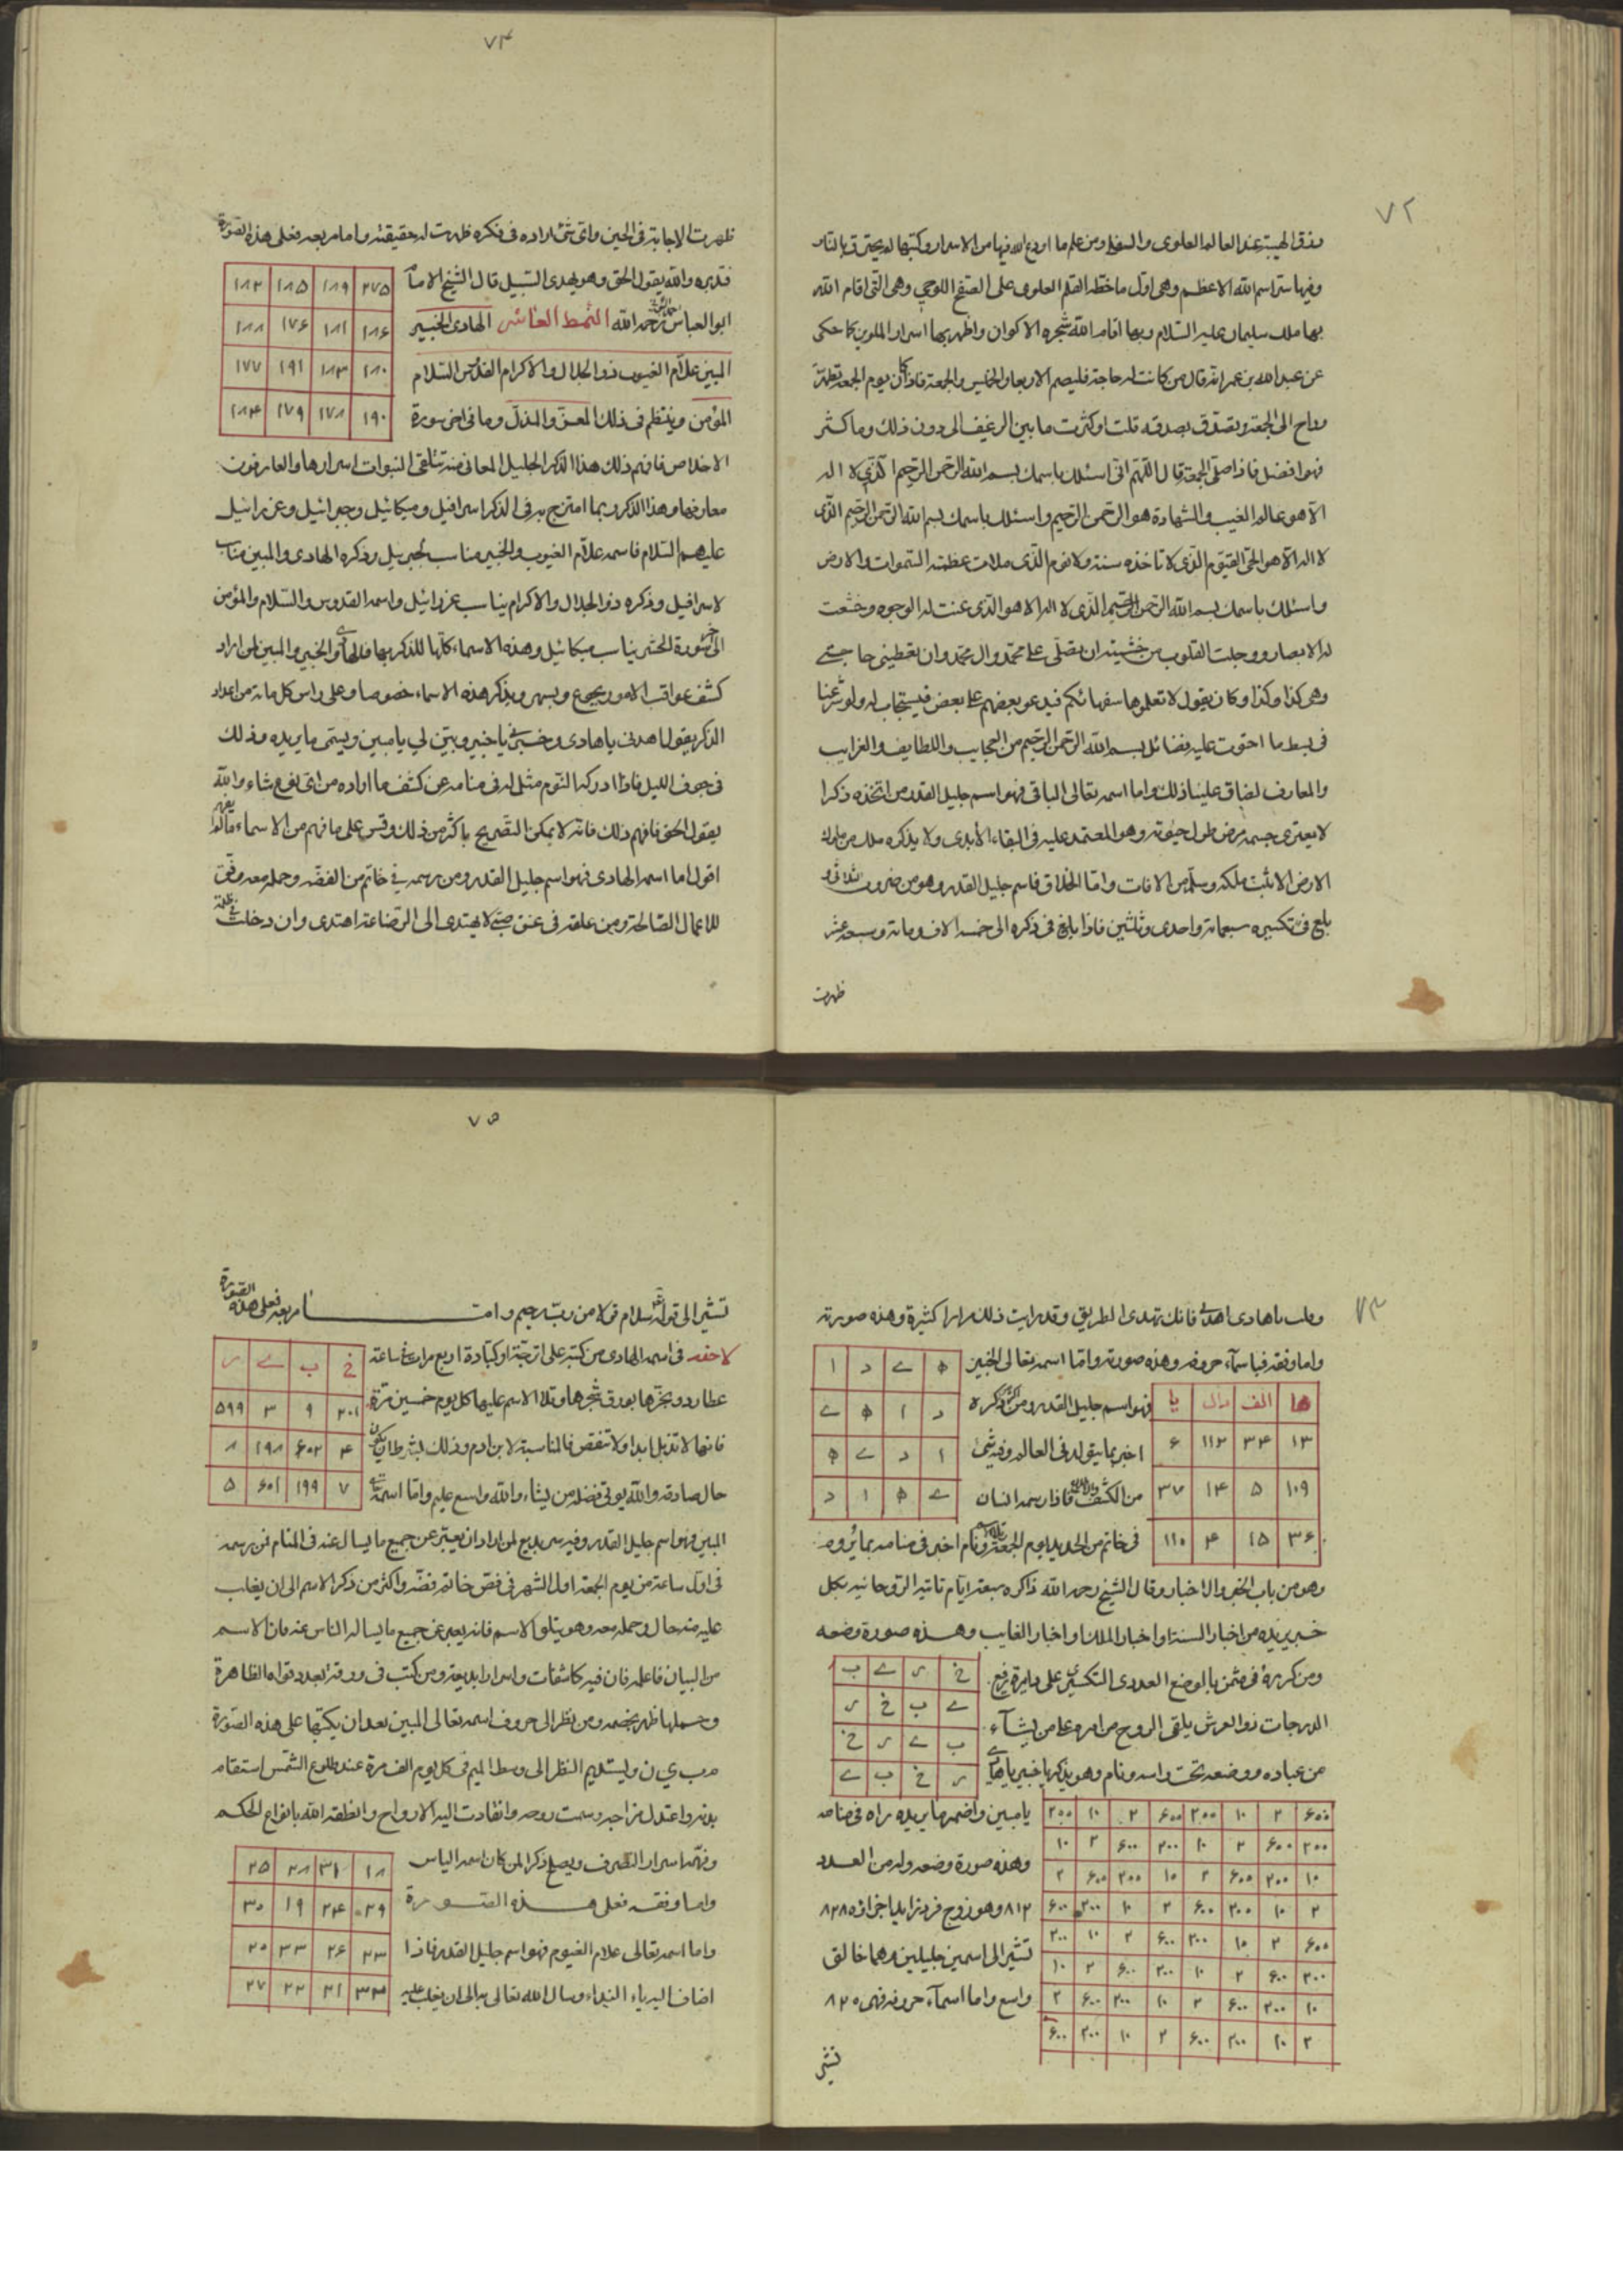 ٧٢
ورزق الهيبة عند العالم العلوى والسفلى ومن علم ما اودع الله فيها من الاسرار وكتبها لم يحترق بالنار
وفيها سر اسم الله الاعظم وهى اول ما خطه القلم العلوى على الصفح اللوحى وهى التى اقام الله
بها ملك سليمان عليه السلام وبها اقام الله شجره الاكوان واظهر بها اسرار الملوين كما حكى
عن عبد الله بن عمر انه قال من كانت له حاجة فليصم الاربعا والخميس والجمعة فاذا كان يوم الجمعة تطهر
وراح الى الجمعة وتصدق بصدقه قلت او كثرت ما بين الرغيف الى دون ذلك وما كثر
فهو افضل فاذا صلى الجمعة قال اللهم انى اسئلك باسمك بسم الله الرحمن الرحيم الذى لا اله
الا هو عالم الغيب والشهادة هو الرحمن الرحيم واسئلك باسمك بسم الله الرحمن الرحيم الذى
لا اله الا هو الحى القيوم الذى لا تاخذه سنة ولا نوم الذى ملات عظمته السموات والارض
واسئلك باسمك بسم الله الرحمن الرحيم الذى لا اله الا هو الذى عنت له الوجوه وخشعت
له الابصار ووجلت القلوب من خشيته ان تصلى على محمد وال محمد وان تعطينى حاجتى
وهى كذا وكذا وكان يقول لا تعلموها سفهائكم فيدعو بعضهم على بعض فيستجاب لهم ولو شرعنا
فى بسط ما احتوت عليه فضائل بسم الله الرحمن الرحيم من العجايب واللطايف والغرايب
والمعارف لضاق علينا ذلك واما اسمه تعالى الباقى فهو اسم جليل القدر من اتخذه ذكرا
لا يعترى جسمه مرض طول حيوته وهو المعتمد عليه فى البقاء الأبدى ولا يذكره ملك من ملوك
الارض الا ثبت ملكه وسلم من الافات واما الخلاق فاسم جليل القدر وهو من ضروب
بلغ فى تكسيره سبعمائة واحدى وثلثين فاذا بلغ فى ذكره الى خمسة الاف ومائة وسبعة عشر
ظهرت
٧٤
ظهرت الاجابة فى الحين واى شئ اراده فى فكره ظهرت له حقيقته واما مربعه فعلى هذه الصورة
فتدبره والله يقول الحق وهو يهدى السبيل قال الشيخ الامام
ابو العباس رحمه الله النمط العاشر الهادى الخبير
المبين علام الغيوب ذو الجلال والاكرام القدوس السلام
المؤمن وينتظم فى ذلك المعز والمذل وما فى اخر سورة
٢٧٥ ١٨٩ ١٨٥ ١٨٢
١٨۶ ١٨١ ١٧۶ ١٨٨
١٨٠ ١٨٣ ١٩١ ١٧٧
١٩٠ ١٧٨ ١٧٩ ١٨۴
الاخلاص فافهم ذلك هذا الذكر الجليل المعانى منه تتلقى النبوات اسرارها والعارفون
معارفها وهذا الذكر وبما امتزج به فى الذكر اسرافيل وميكائيل وجبرائيل وعزرائيل
عليهم السلام فاسمه علام الغيوب والخبير مناسب لجبريل وذكره الهادى والمبين مناسب
لاسرافيل وذكره ذو الجلال والاكرام يناسب عزرائيل واسمه القدوس والسلام والمؤمن
الى اخر سورة الحشر يناسب ميكائيل وهذه الاسماء كلها للذكر بها فالهادى والخبير والمبين لمن اراد
كشف عواقب الامور يجوع ويسهر ويذكر هذه الاسماء خصوصا وعلى راس كل مائة من اعداد
الذكر يقول اهدنى يا هادى وخبرنى يا خبير وبين لى يا مبين ويسمى ما يريده وذلك
فى جوف الليل فاذا ادركه النوم مثل له فى منامه عن كشف ما اراده من اى نوع شاء والله
يقول الحق فافهم ذلك فانه لا يمكن التصريح باكثر من ذلك وقس على ما فهم من الاسماء
اقول اما اسمه الهادى فهو اسم جليل القدر ومن رسمه فى خاتم من الفضة وحمله معه وفق
للاعمال الصالحة ومن علقه فى عنق صبى لا يهتدى الى الرضاعة اهتدى وان دخلت فى ظلمة
٧٣
وقلت يا هادى اهدنى فانك تهدى الطريق وقد رايت ذلك مرارا كثيرة وهذه صورته
ه ے د ا
د ا ه ے
ا د ے ه
ے ه ا د
واما وفقه فباسماء حروفه وهذه صورته واما اسمه تعالى الخبير
فهو اسم جليل القدر ومن اكثر ذكره
اخبر بما يتولد فى العالم وفيه شئ
من الكشف فاذا رسمه انسان
فى خاتم من الحديد يوم الجمعة ونام اخبر فى منامه بما يرومه
ها الف دال يا
١٣ ٣۴ ١١٢ ۶
١٠٩ ۵ ١۴ ٣٧
٣۶ ١۵ ۴ ١١٠
وهو من باب الخبر والاخبار وقال الشيخ رحمه الله ذاكره سبعة ايام تاتيه الروحانيه بكل
خبر يريده من اخبار السنة او اخبار الملك او اخبار الغايب وهذه صورة وضعه
خ ر ے ب
ے ب خ ر
ب ے ر خ
ر خ ب ے
ومن كرره فى مثمن بالوضع العددى التكسيرى على دايرة رفيع
الدرجات ذو العرش يلقى الروح من امره على من يشآء
من عباده ووضعه تحت راسه ونام وهو يذكر يا خبير يا هادى
يا مبين واضمر ما يريده يراه فى منامه
وهذه صورة وضعه وله من العدد
٨١٢ وهو زوج فرد
تشير الى اسمين جليلين وهما خالق
واسع واما اسمآء حروفه فهى ٨٢٠
۶٠٠ ٢ ١٠ ٢٠٠ ۶٠٠ ٢ ١٠ ٢٠٠
٢٠٠ ۶٠٠ ٢ ١٠ ٢٠٠ ۶٠٠ ٢ ١٠
١٠ ٢٠٠ ۶٠٠ ٢ ١٠ ٢٠٠ ۶٠٠ ٢
٢ ١٠ ٢٠٠ ۶٠٠ ٢ ١٠ ٢٠٠ ۶٠٠
۶٠٠ ٢ ١٠ ٢٠٠ ۶٠٠ ٢ ١٠ ٢٠٠
٢٠٠ ۶٠٠ ٢ ١٠ ٢٠٠ ۶٠٠ ٢ ١٠
١٠ ٢٠٠ ۶٠٠ ٢ ١٠ ٢٠٠ ۶٠٠ ٢
٢ ١٠ ٢٠٠ ۶٠٠ ٢ ١٠ ٢٠٠ ۶٠٠
تشير
٧۵
تشير الى قوله سلام قولا من رب رحيم واما مربعه فعلى هذه الصورة
لاحقه فى اسمه الهادى من كتبه على اترجة او كبادة اربع مرات فى ساعة
عطارد وبخرها بورق شجرها وتلا الاسم عليها كل يوم خمسين مرة
فانها لا تذبل ابدا ولا تنقص فالمناسبة لابن ادم وذلك بشرط ان يكون
حال صادق والله يوتى فضله من يشاء والله واسع عليم واما اسمه تعالى
خ ب ے ر
٢٠١ ٩ ٣ ۵٩٩
۴ ۶٠٢ ١٩٨ ٨
٧ ١٩٩ ۶٠١ ۵
المبين فهو اسم جليل القدر وفيه سر بديع لمن اراد ان يعبر عن جميع ما يسال عنه فى المنام فمن رسمه
فى اول ساعة من يوم الجمعة اول الشهر فى فص خاتم فضة واكثر من ذكر الاسم الى ان يغلب
عليه منه حال وحمله معه وهو يتلو الاسم فانه يعبر عن جميع ما يساله الناس عنه فان الاسم
من البيان فاعلم فان فيه كاشفات واسرار بديعة ومن كتب فى ورقة العدد قواه الظاهرة
وحملها ظهر بخصمه ومن نظر الى حروف اسمه تعالى المبين بعد ان يكتبها على هذه الصورة
م ب ي ن وليستديم النظر الى وسط الميم فى كل يوم الف مرة عند طلوع الشمس استقام
بدنه واعتدل مزاجه وسمت روحه وانقادت اليه الارواح وانطقه الله بانواع الحكم
وفهم اسرار التصرف ويصلح ذكرا لمن كان اسمه الياس
واما وفقه فعلى هذه الصورة
واما اسمه تعالى علام الغيوم فهو اسم جليل القدر فاذا
اضاف اليه ياء النداء وسال الله تعالى به الى ان يغلب عليه
١٨ ٣١ ٢٨ ٢۵
٢٩ ٢۴ ١٩ ٣٠
٢٣ ٢۶ ٣٣ ٢٠
٣٢ ٢١ ٢٢ ٢٧